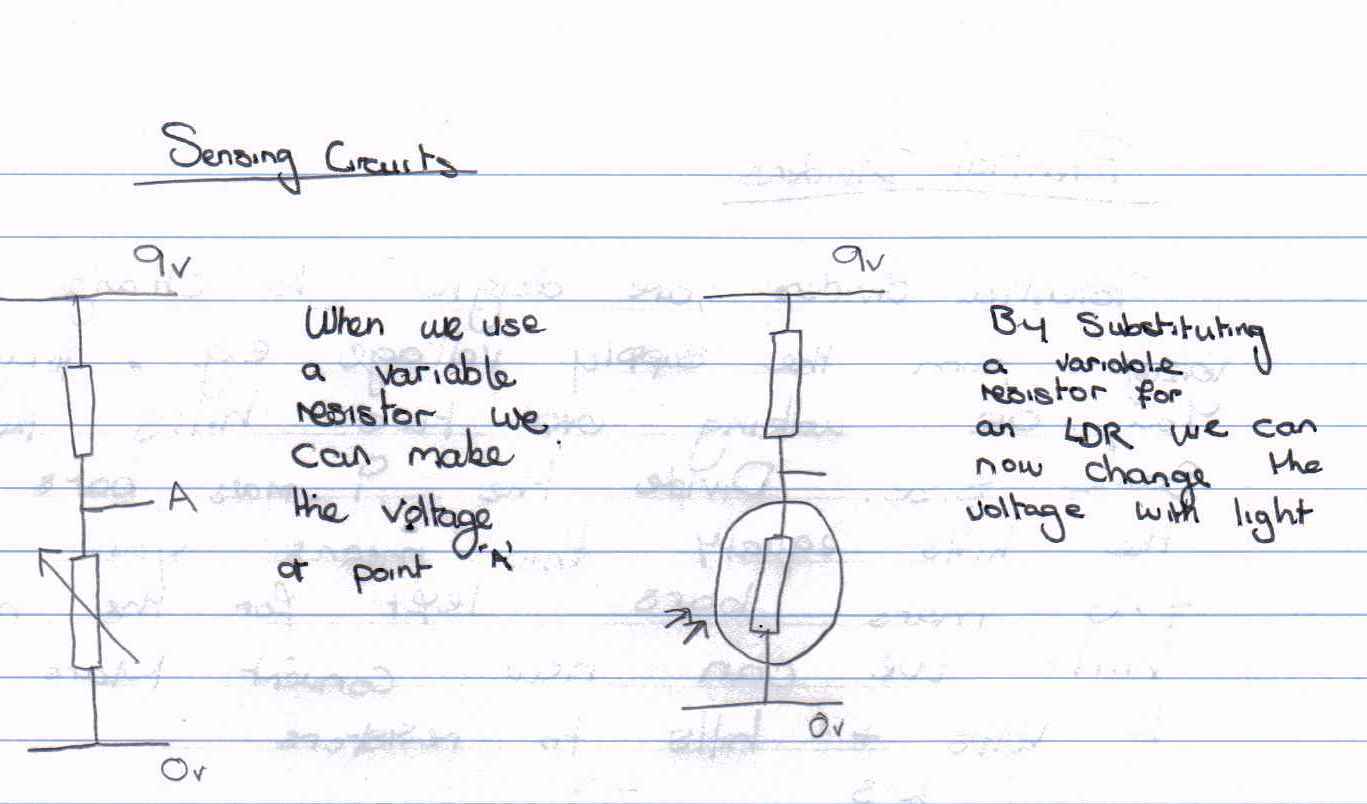 Sensing Circuits
9v
A
0v
When we use
a variable
resistor we
can make
the voltage
at point 'A'
9v
0v
By Substituting
a variable
resistor for
an LDR we can
now change the
voltage with light